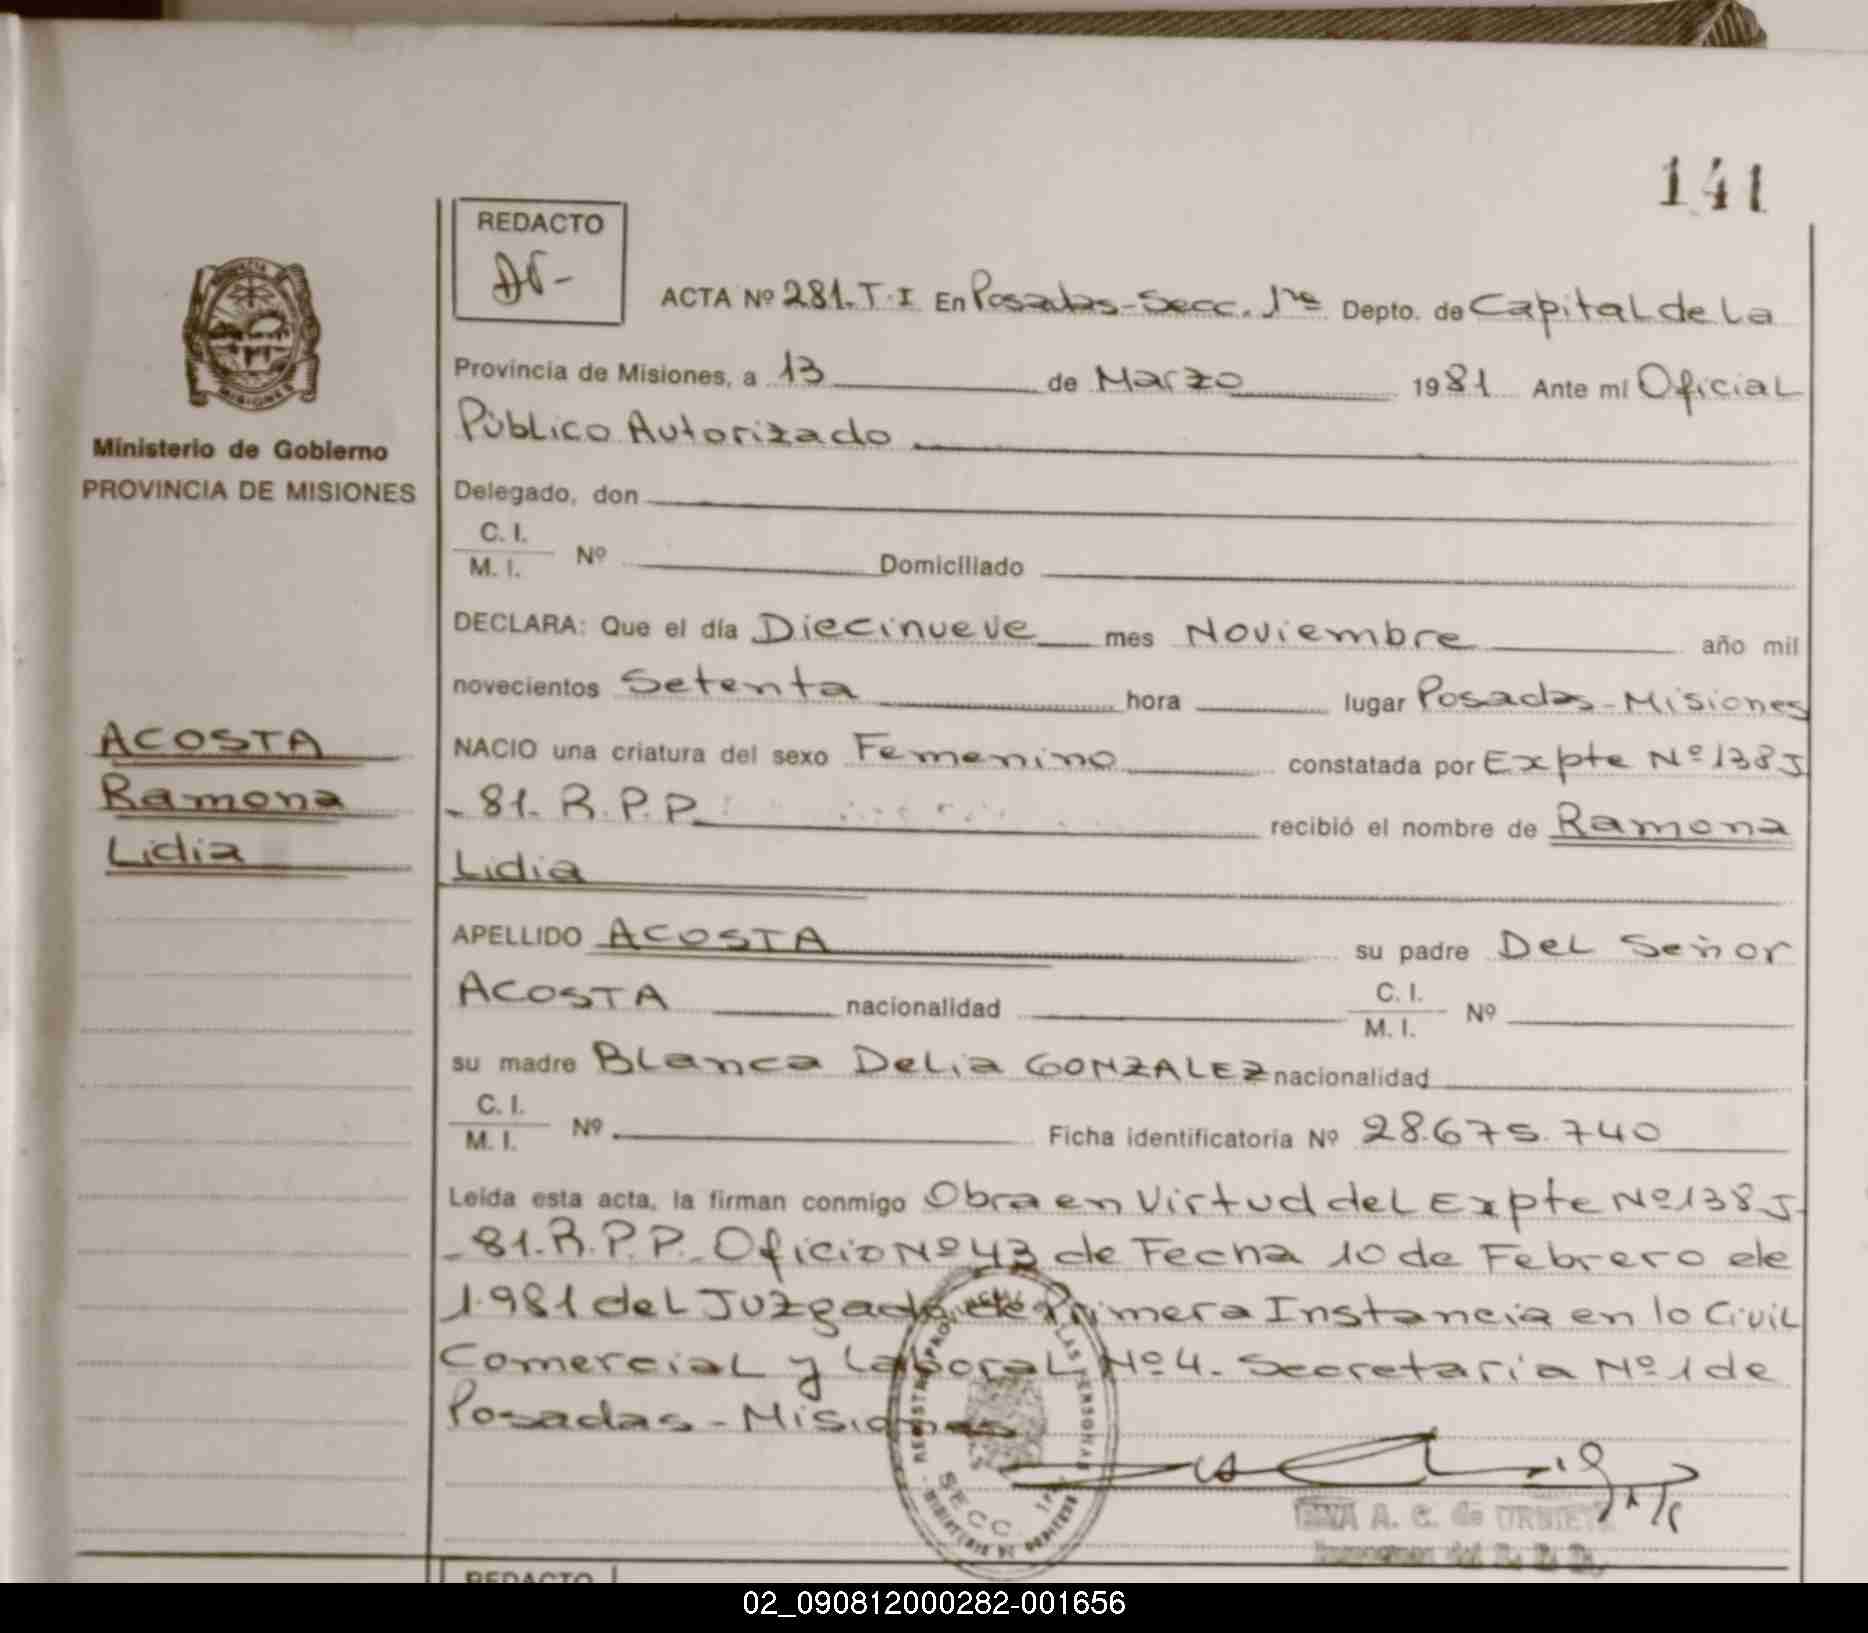 141
REDACTO
ACTA Nº 281. T. I En Posadas - Secc. 1ra Depto. de Capital de la
Provincia de Misiones, a 13 de Marzo 1981 Ante mí Oficial
Público Autorizado
Delegado, don
C. I.
M. I. Nº Domiciliado
DECLARA: Que el día Diecinueve mes Noviembre año mil
novecientos Setenta hora lugar Posadas - Misiones
NACIO una criatura del sexo Femenino constatada por Expte Nº 138 J
- 81. R. P. P. recibió el nombre de Ramona
Lidia
APELLIDO ACOSTA su padre Del Señor
ACOSTA nacionalidad C. I.
M. I. Nº
su madre Blanca Delia GONZALEZ nacionalidad
C. I.
M. I. Nº Ficha identificatoria Nº 28.675.740
Leída esta acta, la firman conmigo Obra en Virtud del Expte Nº 138 J-
- 81. R. P. P. Oficio Nº 43 de Fecha 10 de Febrero de
1.981 del Juzgado de Primera Instancia en lo Civil
Comercial y Laboral Nº 4. Secretaria Nº 1 de
Posadas - Misiones
PROVINCIA
MISIONES
Ministerio de Gobierno
PROVINCIA DE MISIONES
ACOSTA
Ramona
Lidia
LAS PERSONAS
SECC
A. C. de
REDACTO
02_090812000282-001656